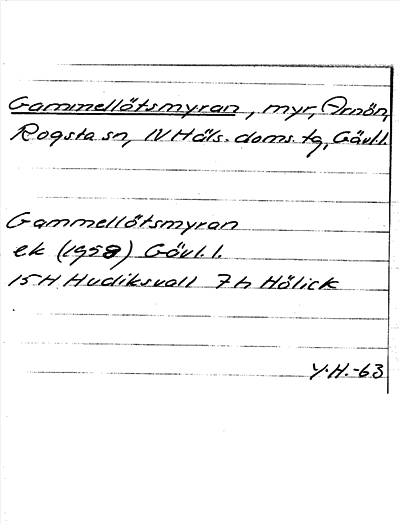 Gammellötsmyran, myr, Arnön,
Rogsta sn, N Häls. doms. tg, Gävl.l.
Gammellötsmyran
ek (1958) Gävl.l.
15H Hudiksvall 7h Hölick
Y.H.-63